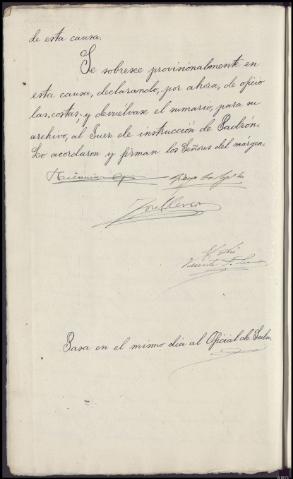 de esta causa.
Se sobresee provisionalmente en
esta causa, declarando, por ahora, de oficio
las costas, y devuélvase el sumario, para su
archivo, al Juez de instrucción de Padrón.
Lo acordaron y firman los Señores del margen.
Pasa en el mismo día al Oficial de Sala.